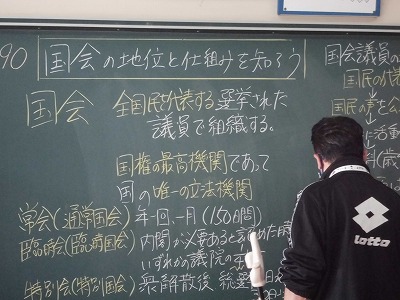 90
国会の地位と仕組みを知ろう
国会 全国民を代表する選挙された
議員で組織する。
国権の最高機関であって
国の唯一の立法機関
常会(通常国会) 年一回、一月(150日間)
臨時会(臨時国会) 内閣が必要あると
いずれかの議院の
特別会(特別国会) 衆・解散後 総選
国会議員の
国民の代表
国民の声を
lotto